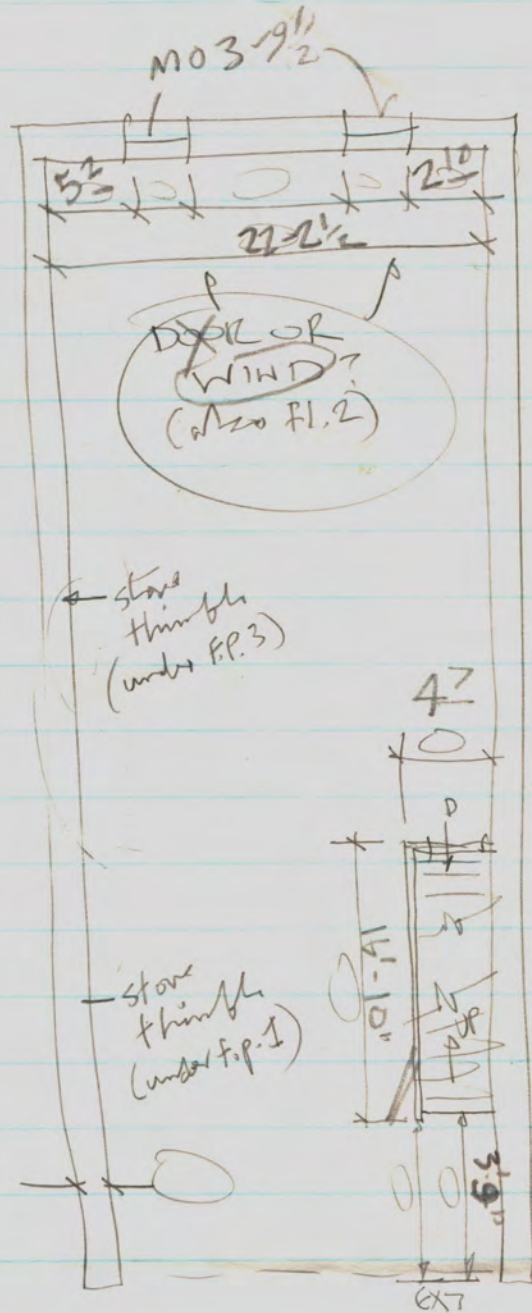 MO 3-9½
5²
2¹⁰
22-2½
DOOR OR
WIND?
(also fl. 2)
stove
thimble
(under F.P. 3)
4⁷
D
14-10"
stove
thimble
(under f.p. 1)
3'9"
EXT